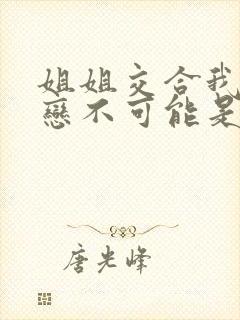 姐姐交合我
戀不可能是
唐光峰